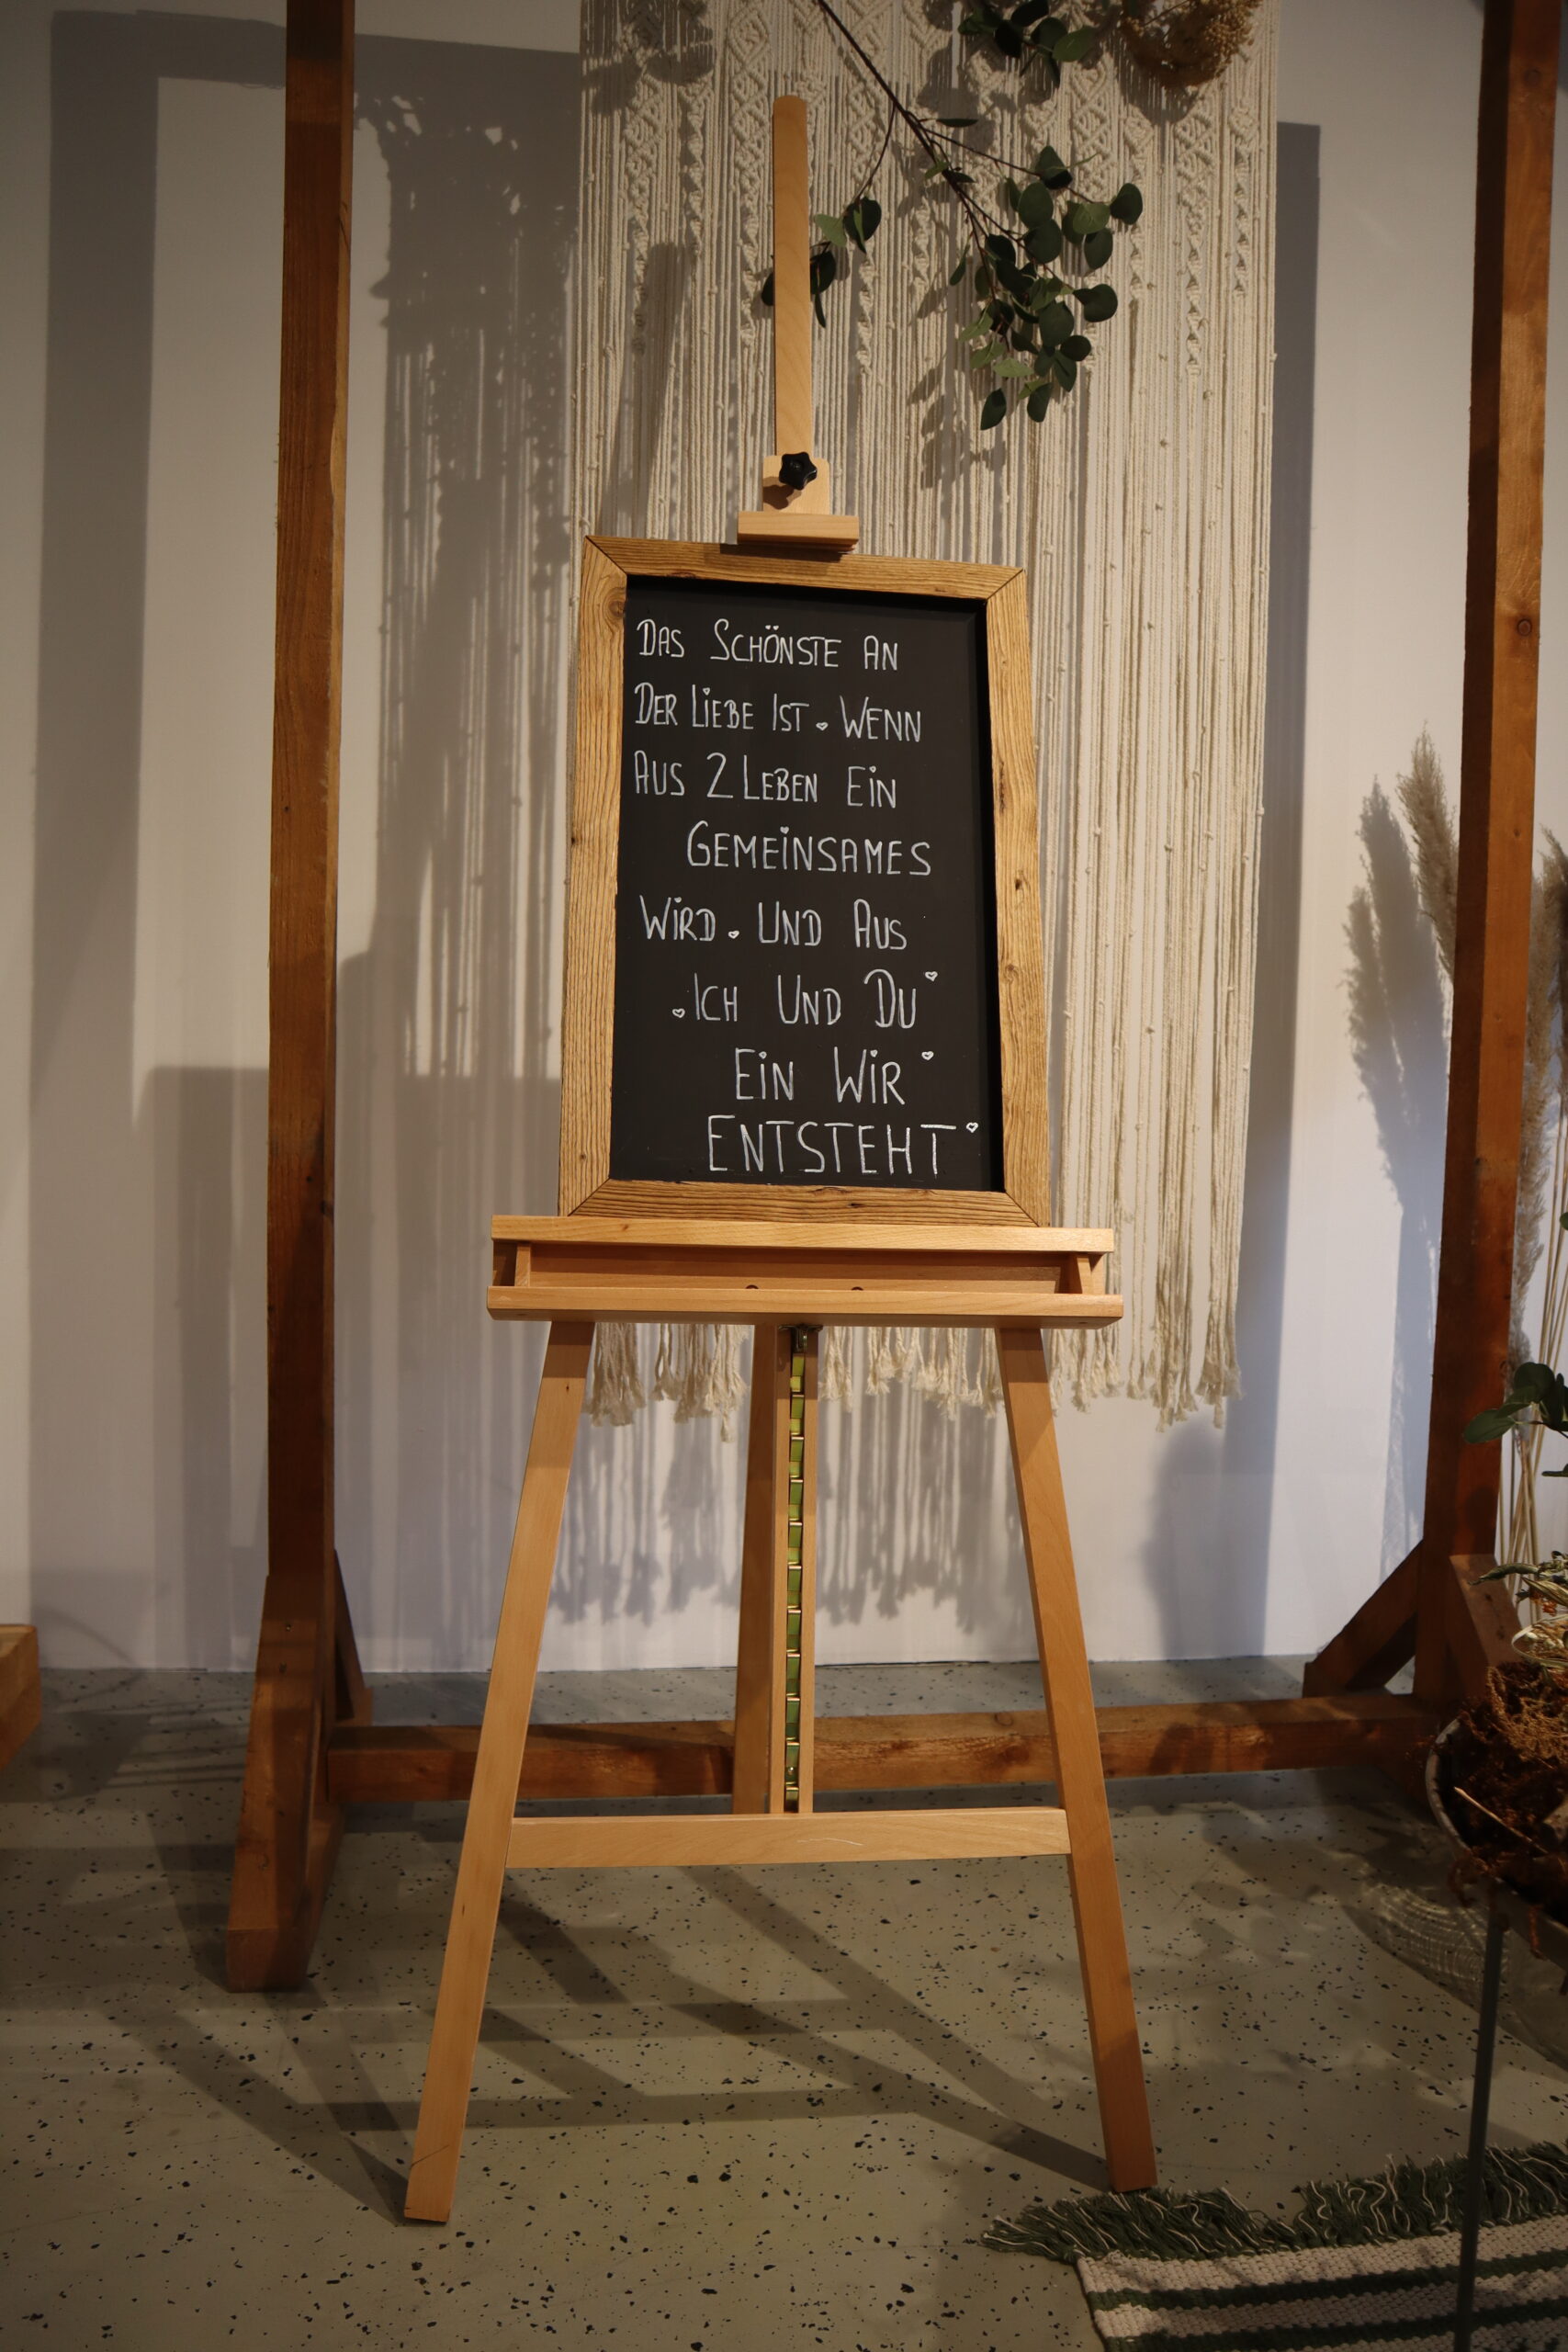 DAS SCHÖNSTE AN
DER LiEBE IST ♥ WENN
AUS 2 LEBEN EiN
GEMEiNSAMES
WiRD ♥ UND AUS
♥ ICH UND DU ♥
EiN WiR ♥
ENTSTEHT ♥